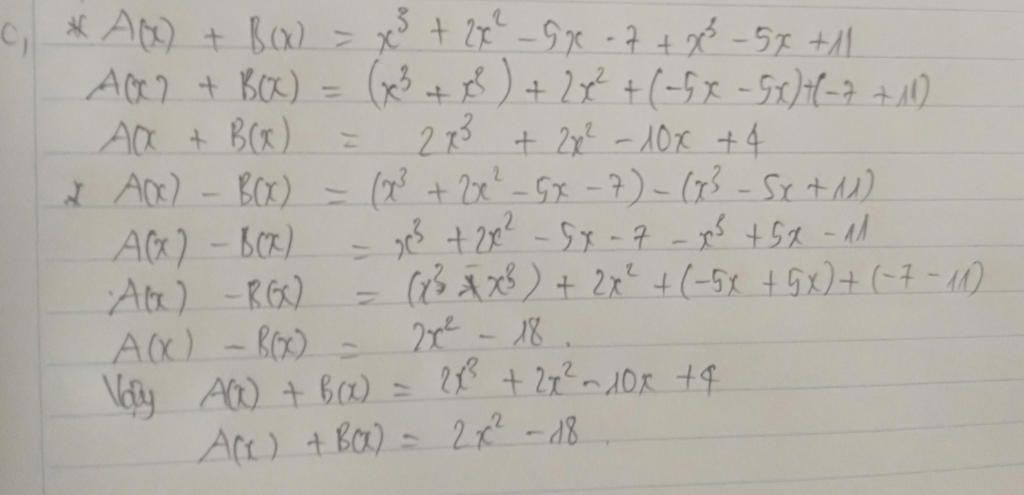 c, * A(x) + B(x) = x³ + 2x² - 5x - 7 + x³ - 5x + 11
A(x) + B(x) = (x³ + x³) + 2x² + (-5x - 5x)+(-7 + 11)
A(x + B(x) = 2x³ + 2x² - 10x + 4
* A(x) - B(x) = (x³ + 2x² - 5x - 7) - (x³ - 5x + 11)
A(x) - B(x) = x³ + 2x² - 5x - 7 - x³ + 5x - 11
A(x) - B(x) = (x³ - x³) + 2x² + (-5x + 5x) + (-7 - 11)
A(x) - B(x) = 2x² - 18.
Vậy A(x) + B(x) = 2x³ + 2x² - 10x + 4
A(x) + B(x) = 2x² - 18.